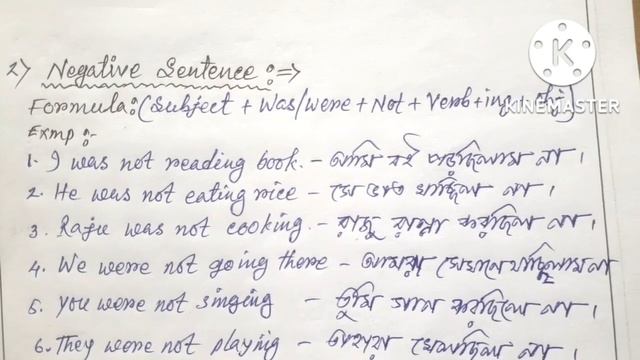 2) Negative Sentence :=>
Formula:(Subject + Was/were + Not + Verb+ing+
KINEMASTER
Exmp :-
1. I was not reading book. - আমি বই পড়ছিলাম না।
2. He was not eating rice - সে ভাত খাচ্ছিল না।
3. Raju was not cooking. - রাজু রান্না করছিল না।
4. We were not going there - আমরা সেখানে যাচ্ছিলাম না
5. you were not singing - তুমি গান করছিলে না।
6. They were not playing - তারা খেলছিল না।